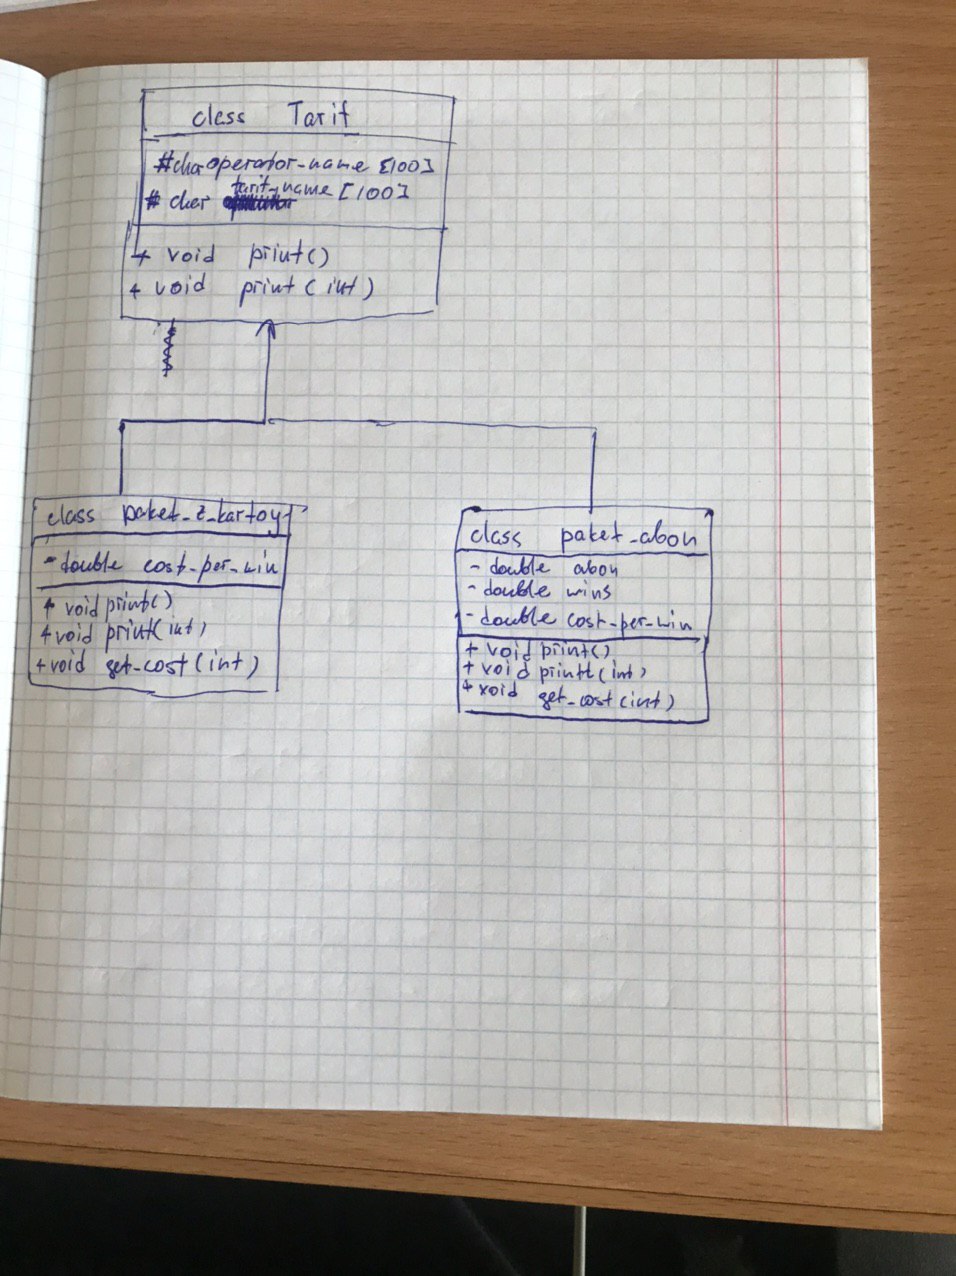 class Tarif
#char operator_name [100]
# char tarif_name [100]
+ void print()
+ void print(int)
class paket_z_kartoy
- double cost_per_min
+ void print()
+ void print(int)
+ void get_cost(int)
class paket_abon
- double abon
- double mins
- double cost_per_min
+ void print()
+ void print(int)
+ void get_cost(int)